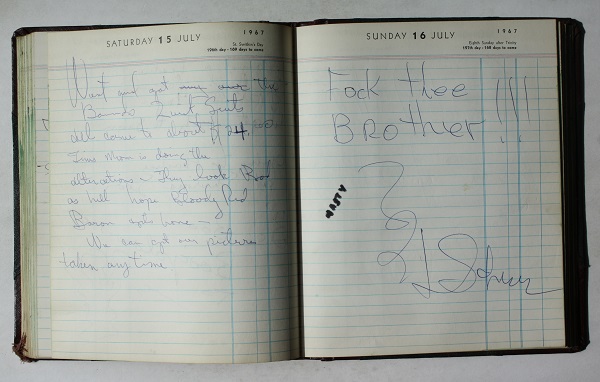 SATURDAY 15 JULY
1967
St. Swithin's Day
196th day - 169 days to come
Went and got my own the
Bands Zuit Suits
all came to about $24.00
Tims Mom is doing the
alterations - They look Good
as hell hope Bloody Red
Baron gets home -
We can get our pictures
taken anytime
SUNDAY 16 JULY
1967
Eighth Sunday after Trinity
197th day - 168 days to come
Fock thee
BROTHER !!!!
NASTY